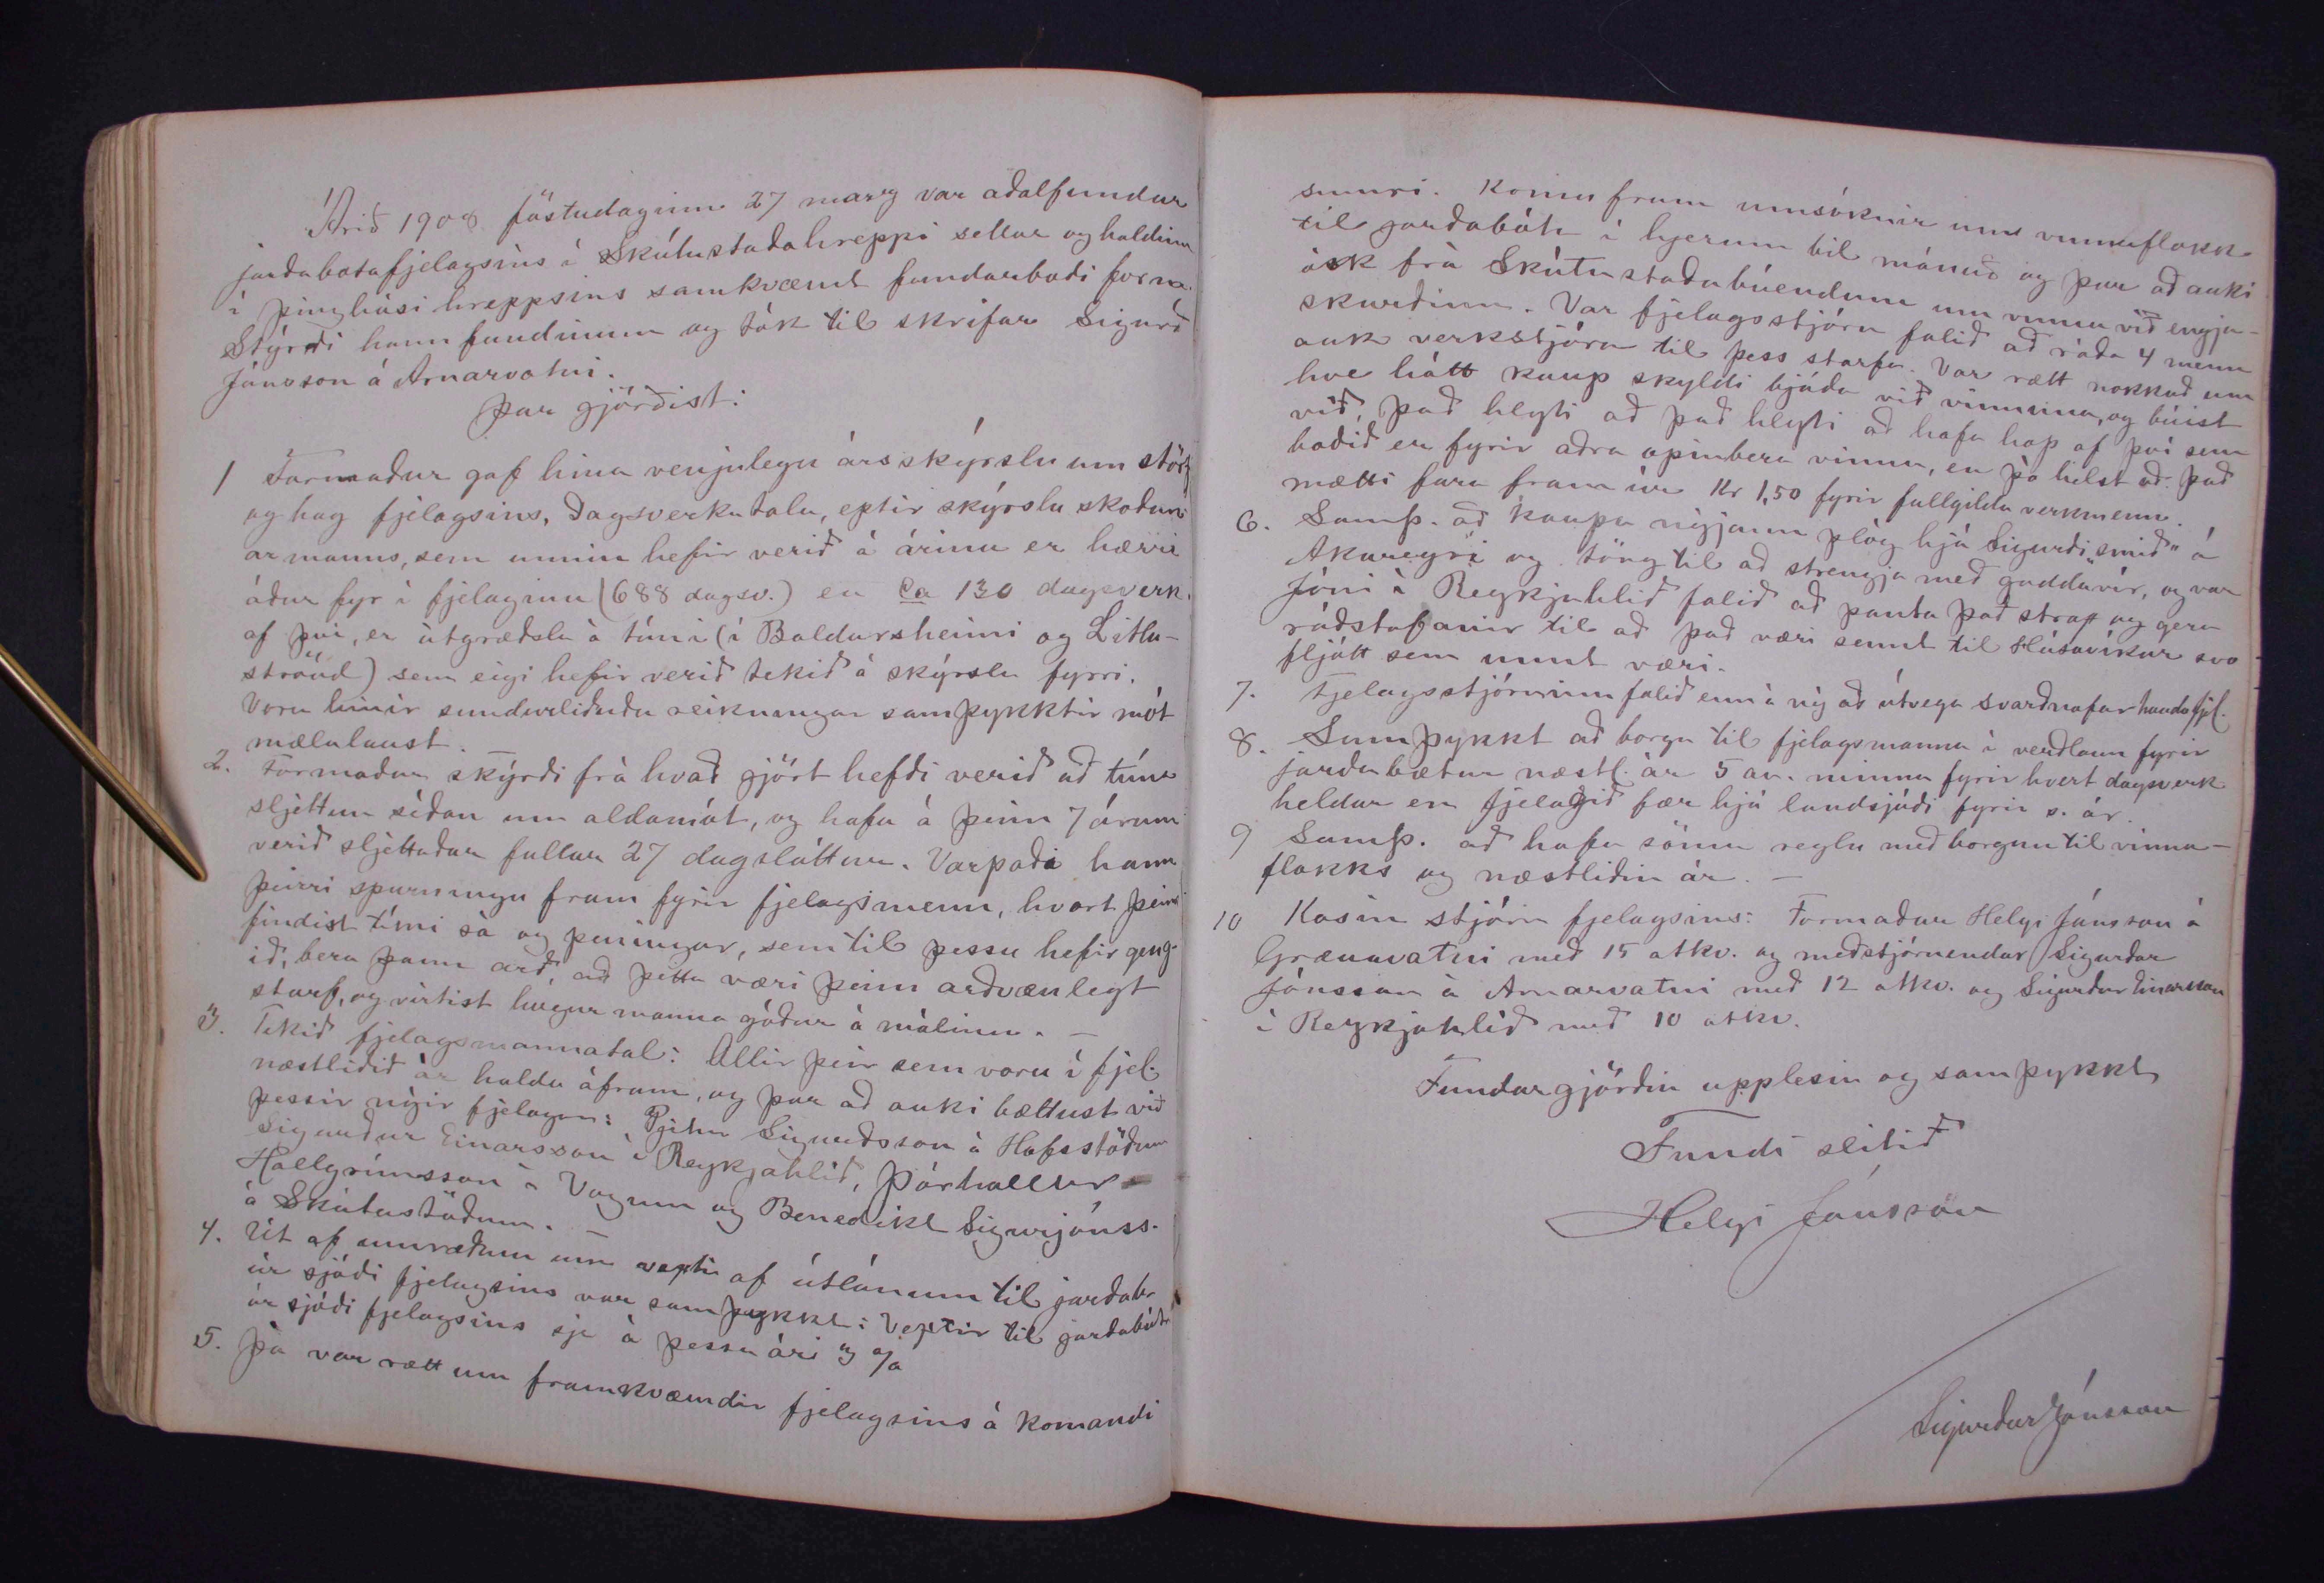 Árið 1908 föstudaginn 27 marz var aðalfundur
jarðabótafjelagsins í Skútustaðahreppi settur og haldinn
í þinghúsi hreppsins samkvæmt fundarboði form.
Stýrði hann fundinum og tók til skrifar Sigurð
Jónsson á Arnarvatni.
Þar gjörðist:
1 Formaður gaf hina venjulegu ársskýrslu um störf
og hag fjelagsins, Dagsverkatala, eptir skýrslu skoðun
ar manns, sem unnin hefir verið á árinu er hærri
áður fyr í fjelaginu (688 dagsv.) en ca 130 dagsverk.
af því, er útgræðsla á túni (í Baldursheimi og Litlu-
strönd) sem eigi hefir verið tekið á skýrslu fyrri.
Voru hinir sundurliðuðu reikningar samþykktir mót
mælalaust.
2. Formaður skýrði frá hvað gjört hefði verið að túna
sljettum síðan um aldamót, og hafa á þeim 7 árum
verið sljettaðar fullar 27 dagsláttur. Varpaði hann
þeirri spurningu fram fyrir fjelagsmenn, hvort þeim
findist tími sá og peningar, sem til þessu hefir geng-
ið, bera þann arð að þetta væri þeim arðvænlegt
starf, og virtist hugur manna góður á málinu. —
3. Tekið fjelagsmannatal: Allir þeir sem voru í fjel.
næstliðið ár halda áfram, og þar að auki bættust við
þessir nýir fjelagar: Pjetur Sigurðsson á Hofsstöðum
Sigurður Einarsson í Reykjahlíð, Þórhallur
Hallgrímsson í Vogum og Benedikt Sigurjónss.
á Skútustöðum. —
4. Út af umræðum um vexti af útlánum til jarðab.
úr sjóði fjelagsins var samþykkt: Vextir til jarðabóta
úr sjóði fjelagsins sje á þessu ári 4 %
5. Þá var rætt um framkvæmdir fjelagsins á komandi
sumri. Komu fram umsóknir um vinnuflokk
til jarðabóta í hjerum bil mánuð og þar að auki
ósk frá Skútustaðabúendum um vinnu við engja-
skurðinn. Var fjelagsstjórn falið að ráða 4 menn
auk verkstjóra til þess starfa. Var rætt nokkuð um
hve hátt kaup skyldi bjóða við vinnuna, og búist
við, það hlyti að það hlyti að hafa hop af því sem
boðið er fyrir aðra opinbera vinnu, en þó helst að það
mætti fara fram úr Kr 1,50 fyrir fullgilda verkmenn.
6. Samþ. að kaupa nýjann plóg hjá Sigurði „smið" á
Akureyri og töng til að strengja með gaddavír, og var
Jóni í Reykjahlíð falið að panta það strax og gera
ráðstafanir til að það væri sennt til Húsavíkur svo
fljótt sem unnt væri.
7. Fjelagsstjórninni falið enn á ný að útvega svarðnafar handa fjel.
8. Samþykkt að borga til fjelagsmanna í verðlaun fyrir
jarðabætur næstl. ár 5 au. minna fyrir hvert dagsverk
heldur en fjelagið fær hjá landsjóði fyrir s. ár.
9 Samþ. að hafa sömu reglu með borgun til vinnu-
flokks og næstliðin ár. —
10 Kosin stjórn fjelagsins: Formaður Helgi Jónsson á
Grænavatni með 15 atkv. og meðstjórnendur Sigurður
Jónsson á Arnarvatni með 12 atkv. og Sigurður Einarsson
í Reykjahlíð með 10 atkv.
Fundargjörðin upplesin og samþykkt
Fundi slitið
Helgi Jónsson
Sigurður Jónsson